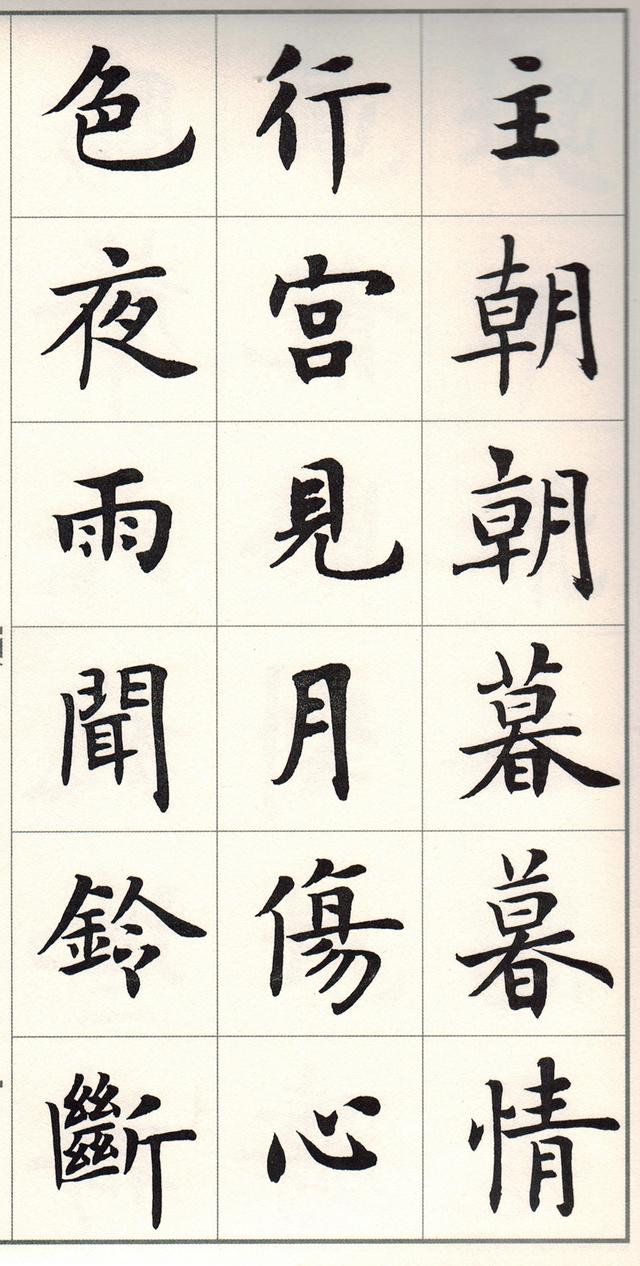 主朝朝暮暮情
行宮見月傷心
色夜雨聞鈴斷